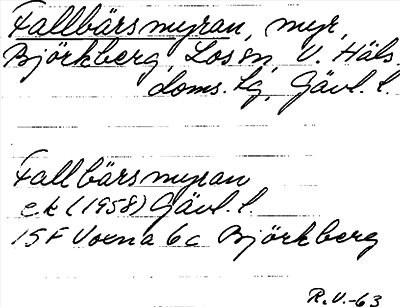 Fallbärsmyran, myr,
Björkberg, Los sn, V. Häls.
doms. lg, Gävl. l.
Fallbärsmyran
ek (1958) Gävl. l.
15F Voxna 6c Björkberg
R.V.-63